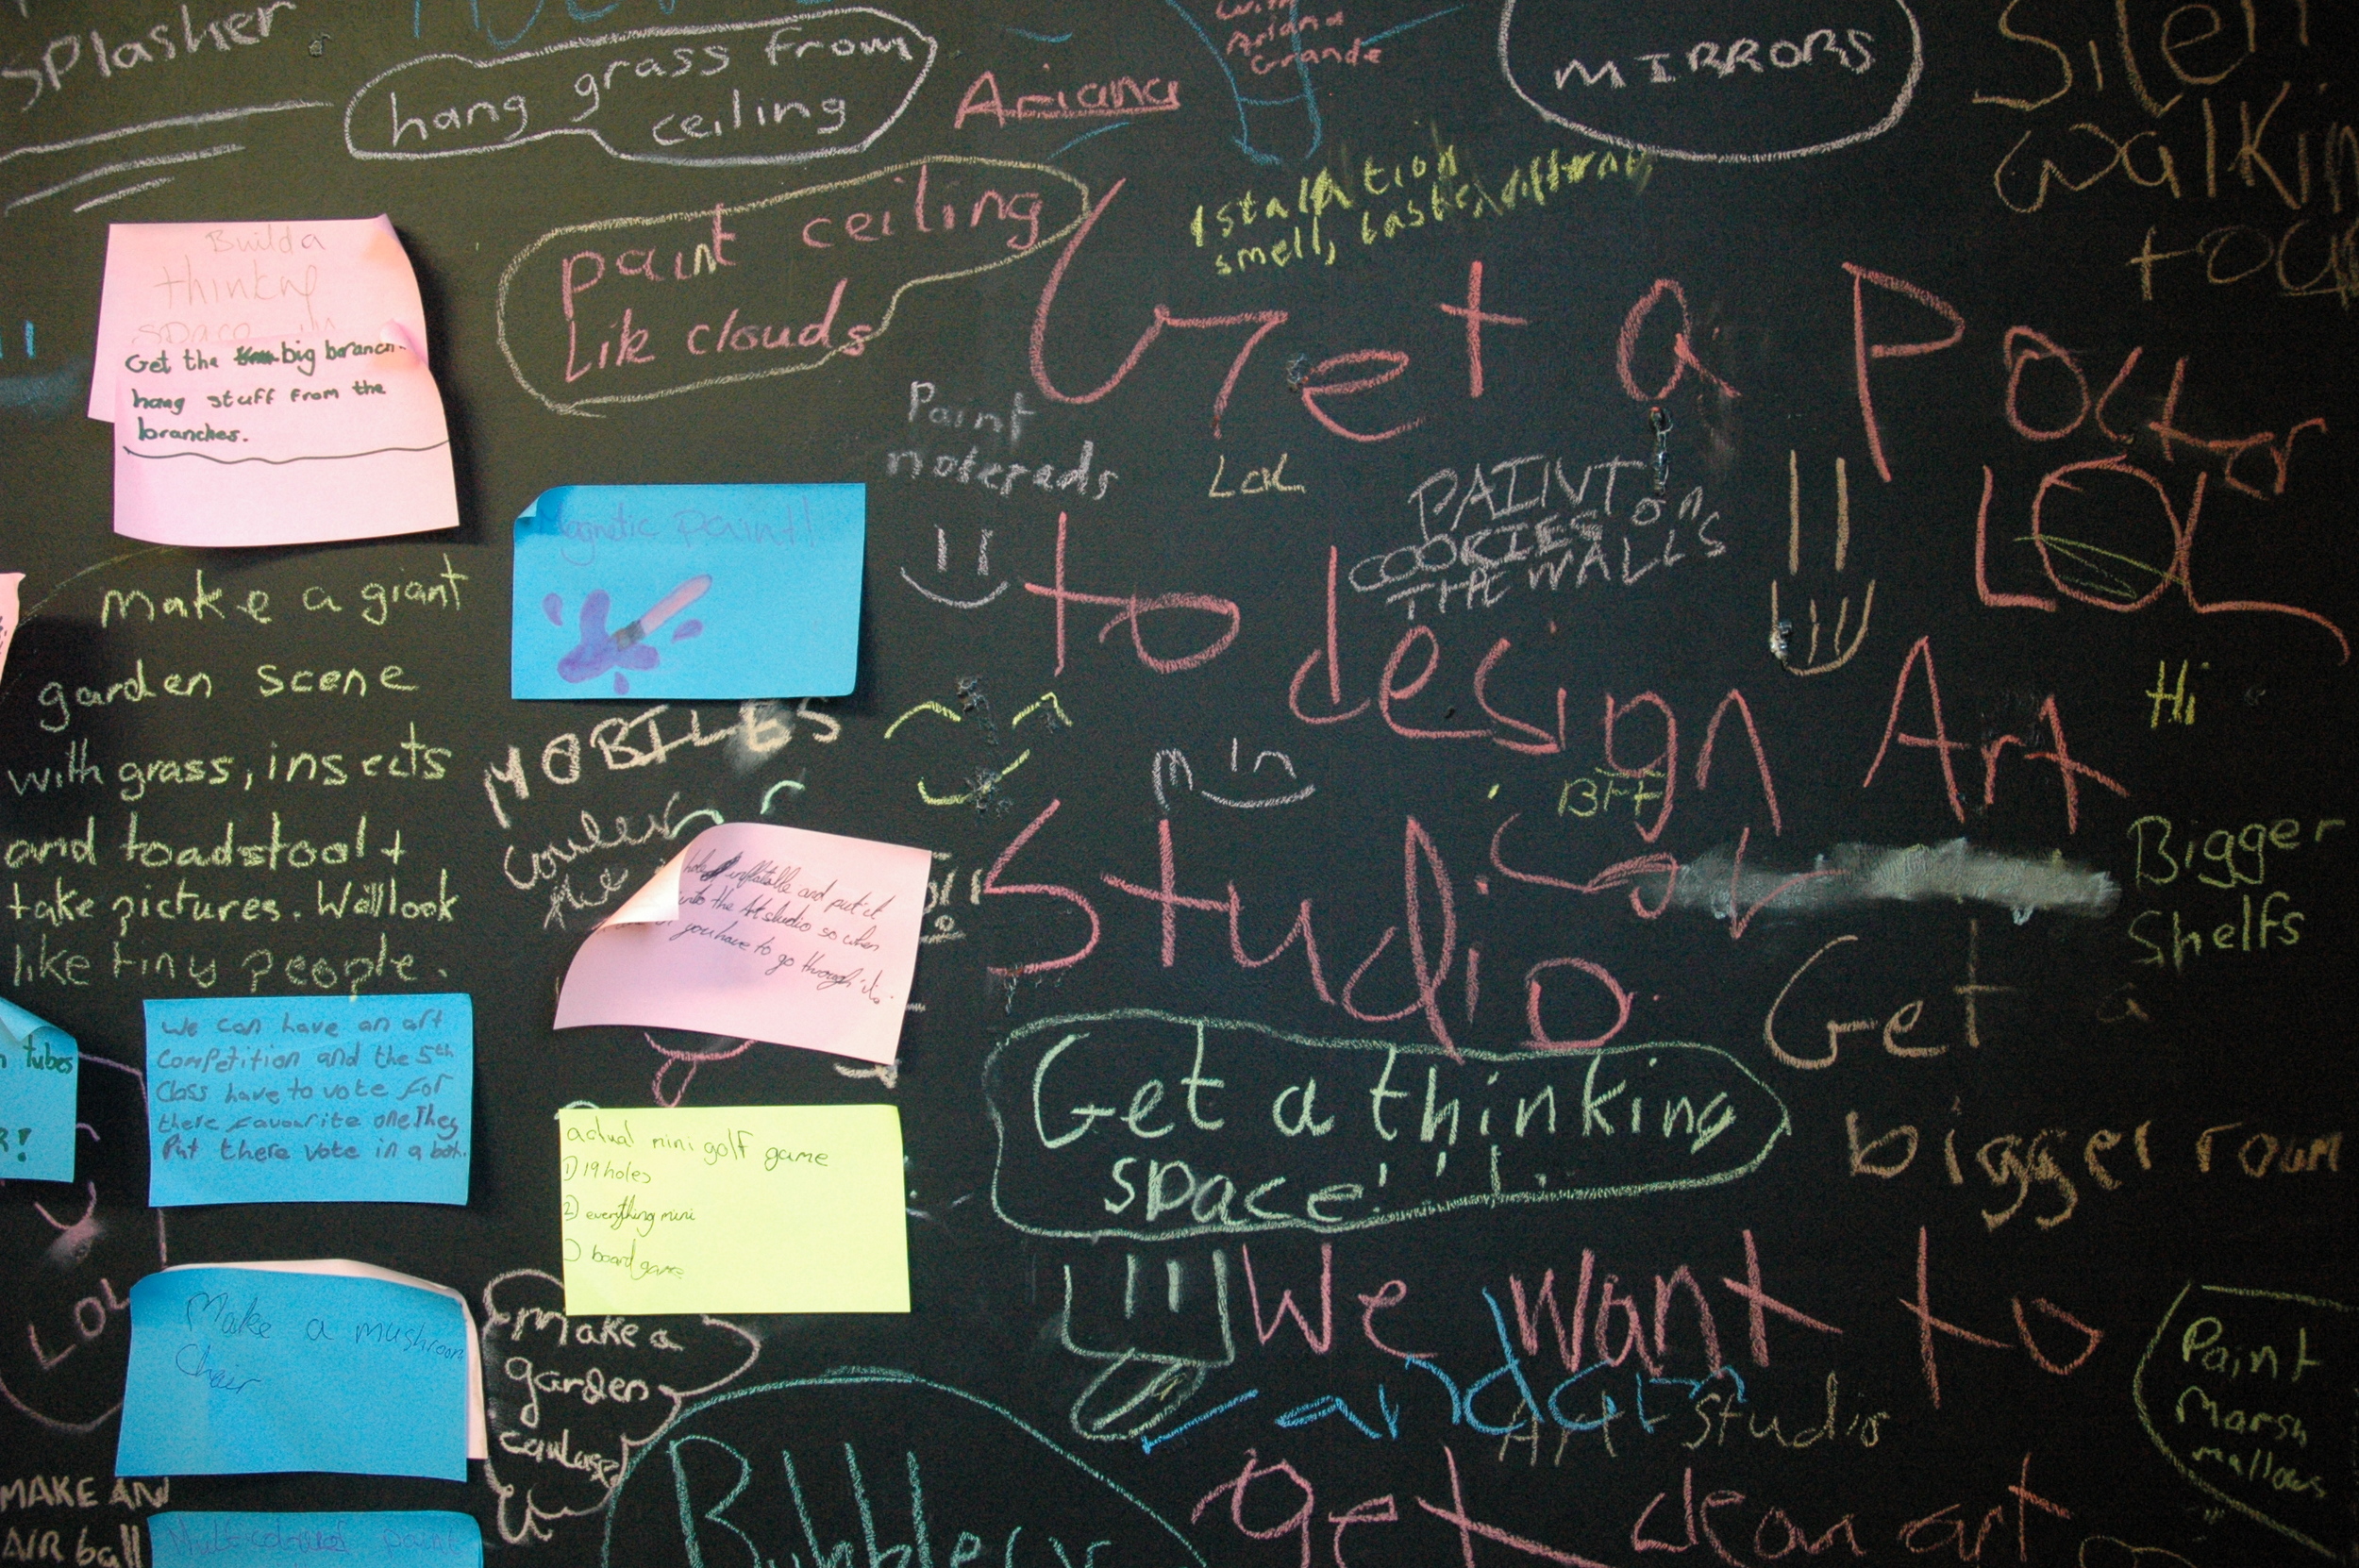 SPLASHER
hang grass from
ceiling
Ariana
with
Ariana
Grande
MIRRORS
Silen
walkin
paint ceiling
Lik clouds
smell,
Build a
thinking
space in
Get the big branch
hang stuff from the
branches.
Get a Poctor
LOL
Paint
notepads
LOL
PAINT
COOKIES on
THE WALLS
Magnetic Paint!
to design Art
Studio.
Hi
BFF
min
Bigger
Shelfs
make a giant
garden scene
with grass, insects
and toadstool +
take pictures. We'll look
like tiny people.
MOBILES
inflatable and put it
into the Art studio so when
you have to go through it.
Get a
bigger room
Get a thinking
space!!!
tubes
We can have an art
Competition and the 5th
Class have to vote for
there favourite one They
Put there vote in a box.
actual mini golf game
1) 19 holes
2) everything mini
) board game
LOL
Make a mushroom
Chair
Make a
garden
We want to
Art Studio
get clean art
Paint
Marsh
mallows
MAKE AN
AIR ball
Multicoloured paint